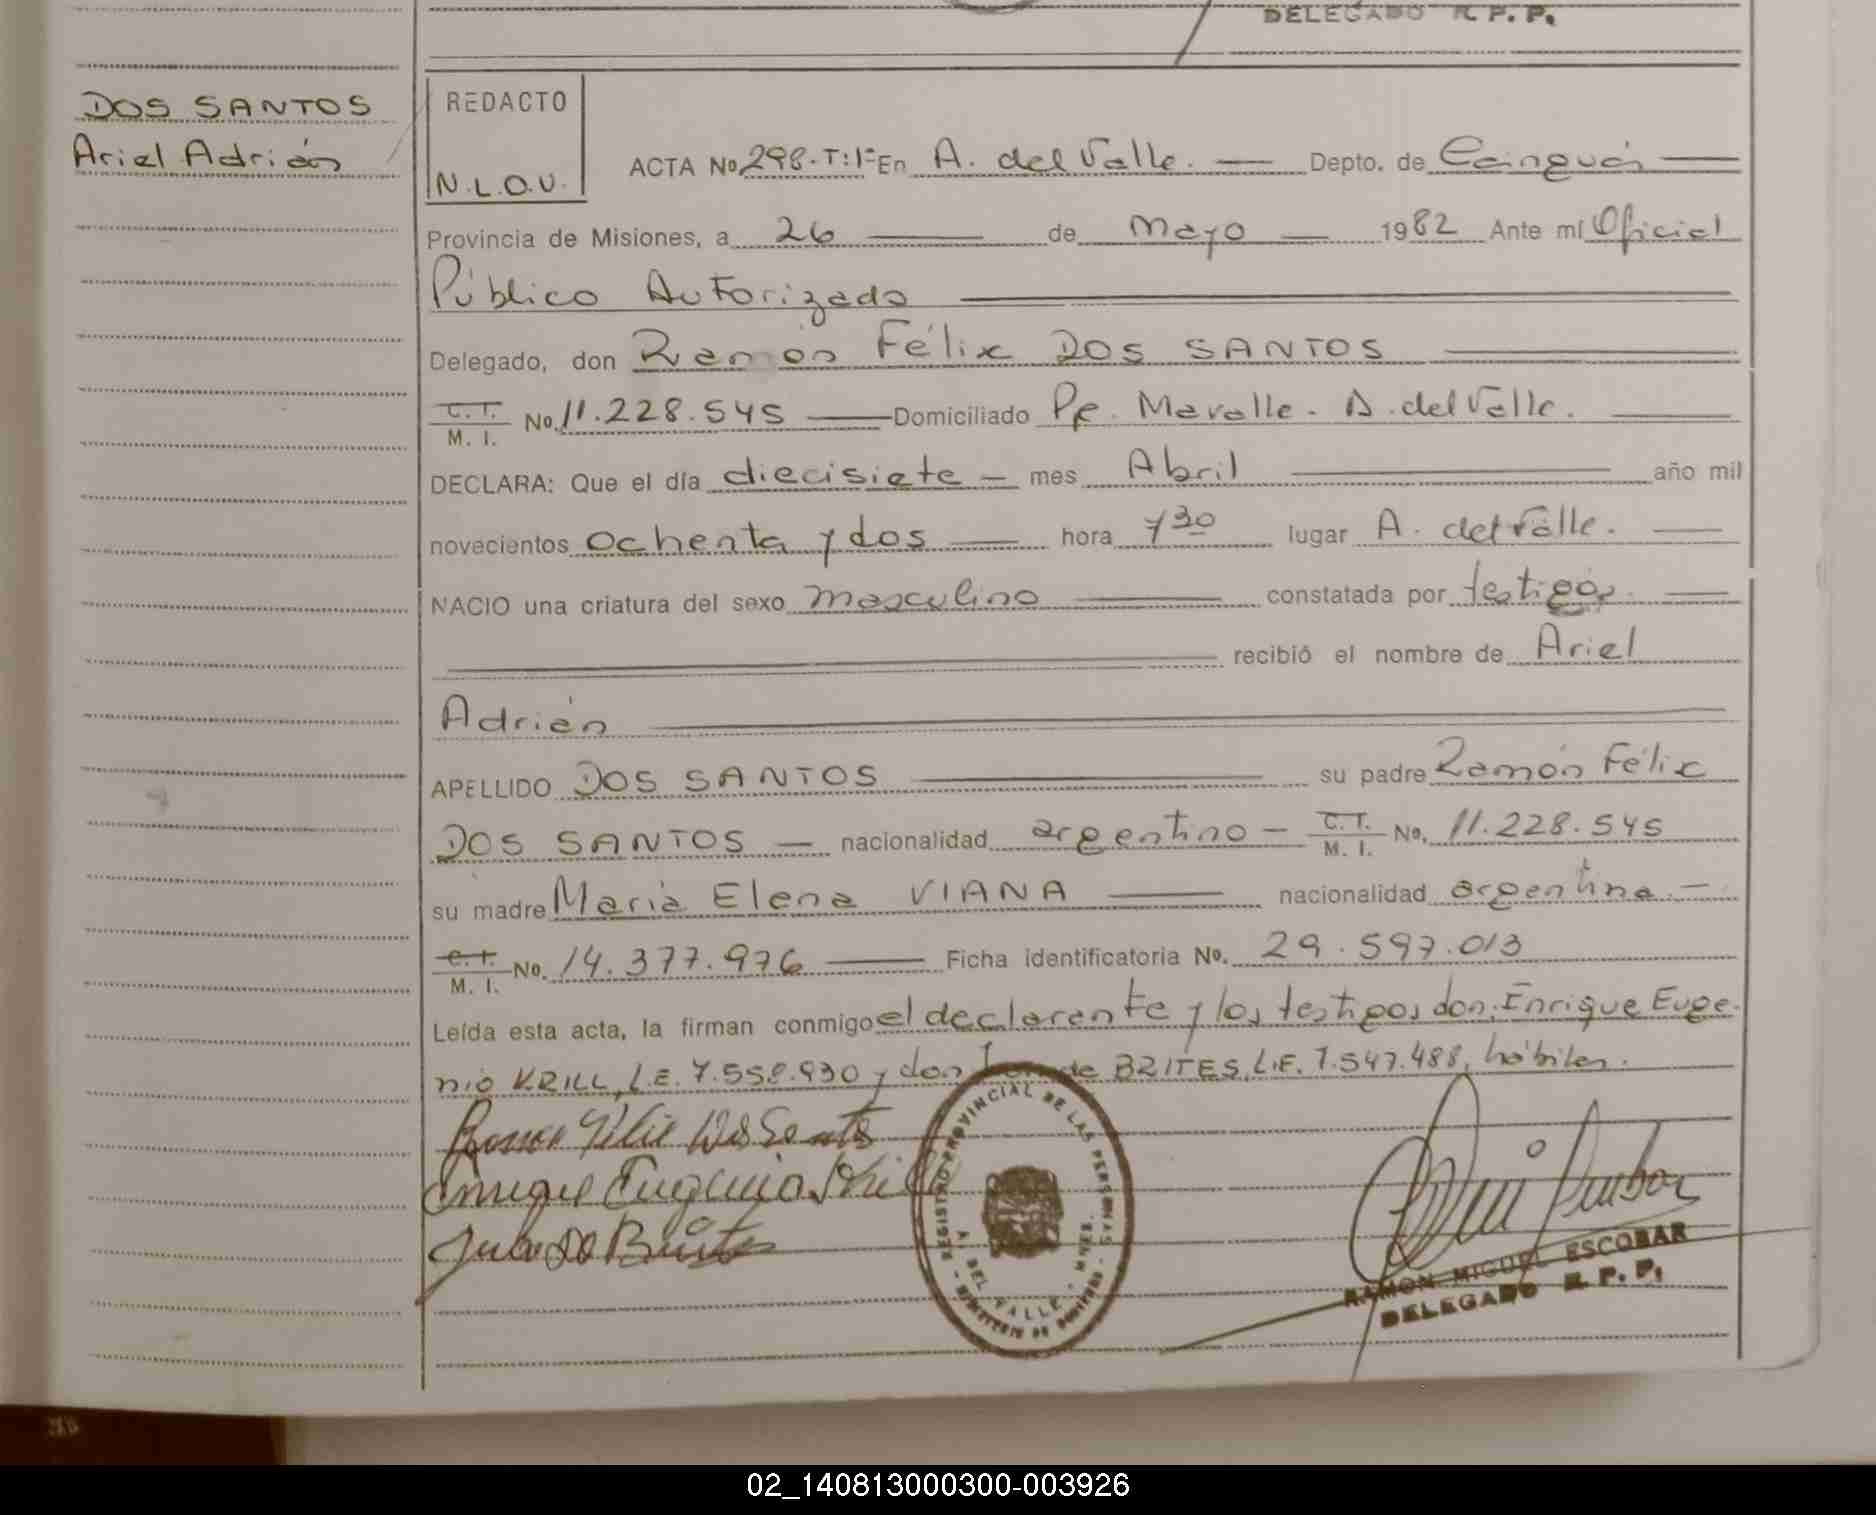 DELEGADO R. P. P.
DOS SANTOS
Ariel Adrián
REDACTO
N.L.O.V.
ACTA No. 298.T:1º En A. del Valle. Depto. de Cainguás
Provincia de Misiones, a 26 de Mayo 1982 Ante mí Oficial
Público Autorizado
Delegado, don Ramón Félix DOS SANTOS
C. I.
M. I. No. 11.228.545 Domiciliado Pje. Mavalle. A. del Valle.
DECLARA: Que el día diecisiete mes Abril año mil
novecientos ochenta y dos hora 7 30 lugar A. del Valle.
NACIO una criatura del sexo masculino constatada por testigos.
recibió el nombre de Ariel
Adrián
APELLIDO DOS SANTOS su padre Ramón Félix
DOS SANTOS nacionalidad argentino C. I.
M. I. No. 11.228.545
su madre María Elena VIANA nacionalidad argentina.
C. I.
M. I. No. 14.377.976 Ficha identificatoria No. 29.597.013
Leída esta acta, la firman conmigo el declarante y los testigos don: Enrique Euge-
nio KRILL, L.E. 7.558.930 y don de BRITES, L.E. 7.547.488, hábiles.
Ramon Felix Dos Santos
Enrique Eugenio Krill
REGISTRO PROVINCIAL DE LAS PERSONAS
A. DEL VALLE - MNES.
MINISTERIO DE GOBIERNO
RAMON MIGUEL ESCOBAR
DELEGADO R. P. P.
02_140813000300-003926